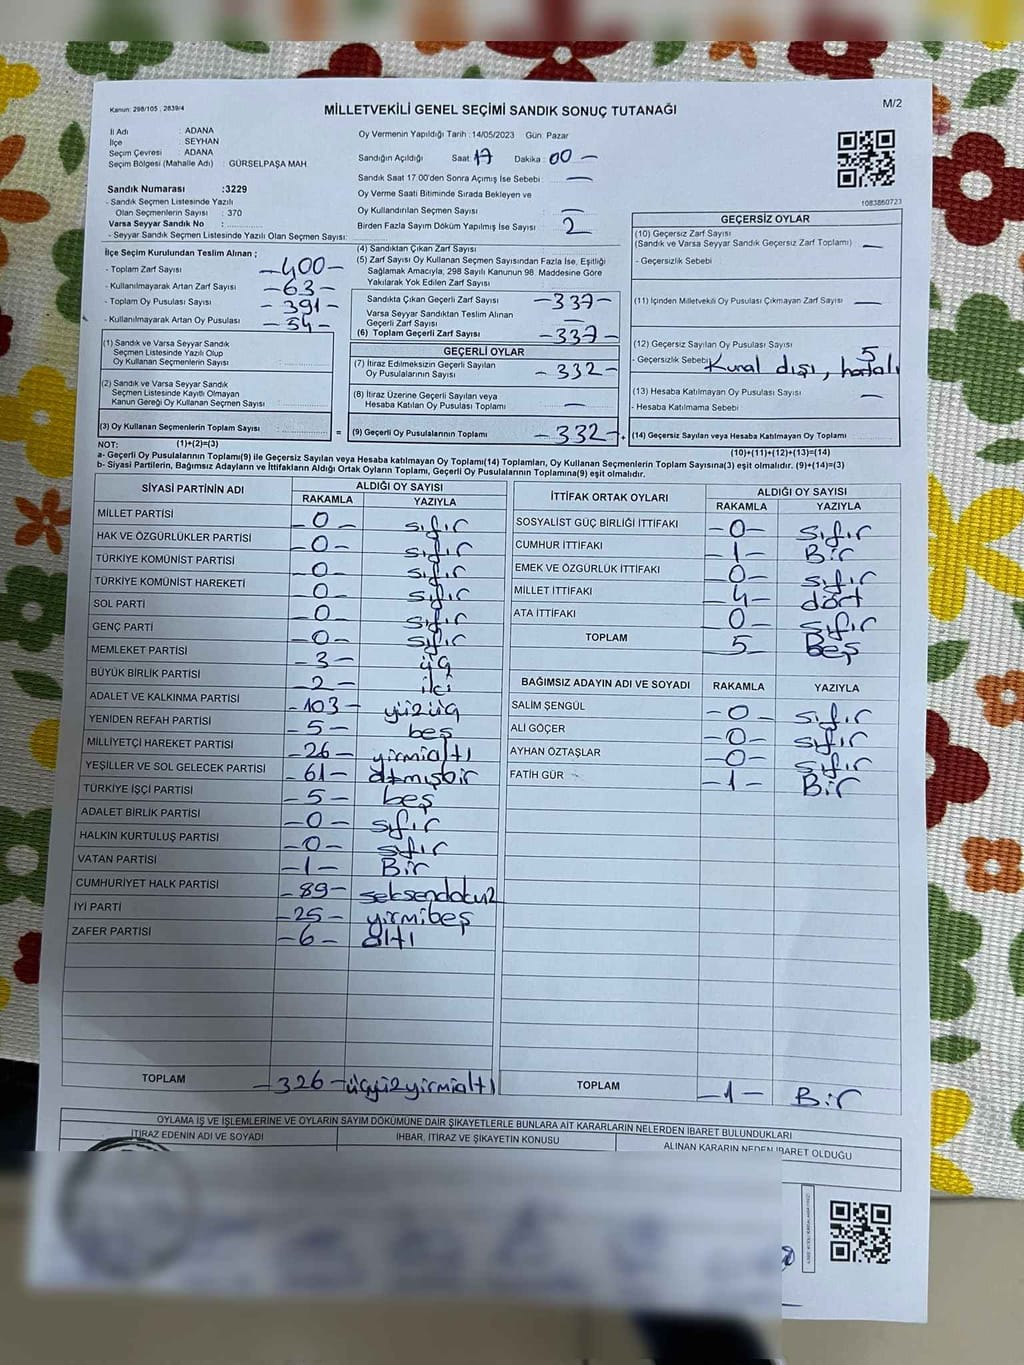 Kanun: 298/105 , 2839/4
MİLLETVEKİLİ GENEL SEÇİMİ SANDIK SONUÇ TUTANAĞI
M/2
İl Adı : ADANA
İlçe : SEYHAN
Seçim Çevresi : ADANA
Seçim Bölgesi (Mahalle Adı) : GÜRSELPAŞA MAH
Sandık Numarası :3229
- Sandık Seçmen Listesinde Yazılı
Olan Seçmenlerin Sayısı : 370
Varsa Seyyar Sandık No :
- Seyyar Sandık Seçmen Listesinde Yazılı Olan Seçmen Sayısı:
Oy Vermenin Yapıldığı Tarih :14/05/2023 Gün: Pazar
Sandığın Açıldığı Saat: 17 Dakika : 00 —
Sandık Saat 17.00'den Sonra Açımış İse Sebebi : —
Oy Verme Saati Bitiminde Sırada Bekleyen ve
Oy Kullandırılan Seçmen Sayısı : —
Birden Fazla Sayım Döküm Yapılmış İse Sayısı : 2
1083860723
İlçe Seçim Kurulundan Teslim Alınan ;
- Toplam Zarf Sayısı —400—
- Kullanılmayarak Artan Zarf Sayısı —63—
- Toplam Oy Pusulası Sayısı —391—
- Kullanılmayarak Artan Oy Pusulası —54—
(1) Sandık ve Varsa Seyyar Sandık
Seçmen Listesinde Yazılı Olup
Oy Kullanan Seçmenlerin Sayısı :
(2) Sandık ve Varsa Seyyar Sandık
Seçmen Listesinde Kayıtlı Olmayan
Kanun Gereği Oy Kullanan Seçmen Sayısı :
(3) Oy Kullanan Seçmenlerin Toplam Sayısı :
(4) Sandıktan Çıkan Zarf Sayısı
(5) Zarf Sayısı Oy Kullanan Seçmen Sayısından Fazla İse, Eşitliği
Sağlamak Amacıyla, 298 Sayılı Kanunun 98. Maddesine Göre
Yakılarak Yok Edilen Zarf Sayısı :
Sandıkta Çıkan Geçerli Zarf Sayısı —337—
Varsa Seyyar Sandıktan Teslim Alınan
Geçerli Zarf Sayısı —
(6) Toplam Geçerli Zarf Sayısı —337—
GEÇERLİ OYLAR
(7) İtiraz Edilmeksizin Geçerli Sayılan
Oy Pusulalarının Sayısı —332—
(8) İtiraz Üzerine Geçerli Sayılan veya
Hesaba Katılan Oy Pusulası Toplamı —
= (9) Geçerli Oy Pusulalarının Toplamı —332— +
GEÇERSİZ OYLAR
(10) Geçersiz Zarf Sayısı
(Sandık ve Varsa Seyyar Sandık Geçersiz Zarf Toplamı) —
- Geçersizlik Sebebi :
(11) İçinden Milletvekili Oy Pusulası Çıkmayan Zarf Sayısı —
(12) Geçersiz Sayılan Oy Pusulası Sayısı 5
- Geçersizlik Sebebi Kural dışı, hatalı
(13) Hesaba Katılmayan Oy Pusulası Sayısı —
- Hesaba Katılmama Sebebi
(14) Geçersiz Sayılan veya Hesaba Katılmayan Oy Toplamı
NOT: (1)+(2)=(3) (10)+(11)+(12)+(13)=(14)
a- Geçerli Oy Pusulalarının Toplamı(9) ile Geçersiz Sayılan veya Hesaba katılmayan Oy Toplamı(14) Toplamları, Oy Kullanan Seçmenlerin Toplam Sayısına(3) eşit olmalıdır. (9)+(14)=(3)
b- Siyasi Partilerin, Bağımsız Adayların ve İttifakların Aldığı Ortak Oyların Toplamı, Geçerli Oy Pusulalarının Toplamına(9) eşit olmalıdır.
SİYASİ PARTİNİN ADI ALDIĞI OY SAYISI
RAKAMLA YAZIYLA
MİLLET PARTİSİ —0— sıfır
HAK VE ÖZGÜRLÜKLER PARTİSİ —0— sıfır
TÜRKİYE KOMÜNİST PARTİSİ —0— sıfır
TÜRKİYE KOMÜNİST HAREKETİ —0— sıfır
SOL PARTİ —0— sıfır
GENÇ PARTİ —0— sıfır
MEMLEKET PARTİSİ —3— üç
BÜYÜK BİRLİK PARTİSİ —2— iki
ADALET VE KALKINMA PARTİSİ —103— yüzüç
YENİDEN REFAH PARTİSİ —5— beş
MİLLİYETÇİ HAREKET PARTİSİ —26— yirmialtı
YEŞİLLER VE SOL GELECEK PARTİSİ —61— atmışbir
TÜRKİYE İŞÇİ PARTİSİ —5— beş
ADALET BİRLİK PARTİSİ —0— sıfır
HALKIN KURTULUŞ PARTİSİ —0— sıfır
VATAN PARTİSİ —1— Bir
CUMHURİYET HALK PARTİSİ —89— seksendokuz
İYİ PARTİ —25— yirmibeş
ZAFER PARTİSİ —6— altı
TOPLAM —326— üçyüzyirmialtı
İTTİFAK ORTAK OYLARI ALDIĞI OY SAYISI
RAKAMLA YAZIYLA
SOSYALİST GÜÇ BİRLİĞİ İTTİFAKI —0— sıfır
CUMHUR İTTİFAKI —1— Bir
EMEK VE ÖZGÜRLÜK İTTİFAKI —0— sıfır
MİLLET İTTİFAKI —4— dört
ATA İTTİFAKI —0— sıfır
TOPLAM 5 Beş
BAĞIMSIZ ADAYIN ADI VE SOYADI RAKAMLA YAZIYLA
SALİM ŞENGÜL —0— sıfır
ALİ GÖÇER —0— sıfır
AYHAN ÖZTAŞLAR —0— sıfır
FATİH GÜR —1— Bir
TOPLAM —1— Bir
OYLAMA İŞ VE İŞLEMLERİNE VE OYLARIN SAYIM DÖKÜMÜNE DAİR ŞİKAYETLERLE BUNLARA AİT KARARLARIN NELERDEN İBARET BULUNDUKLARI
İTİRAZ EDENİN ADI VE SOYADI İHBAR, İTİRAZ VE ŞİKAYETİN KONUSU ALINAN KARARIN NEDEN İBARET OLDUĞU